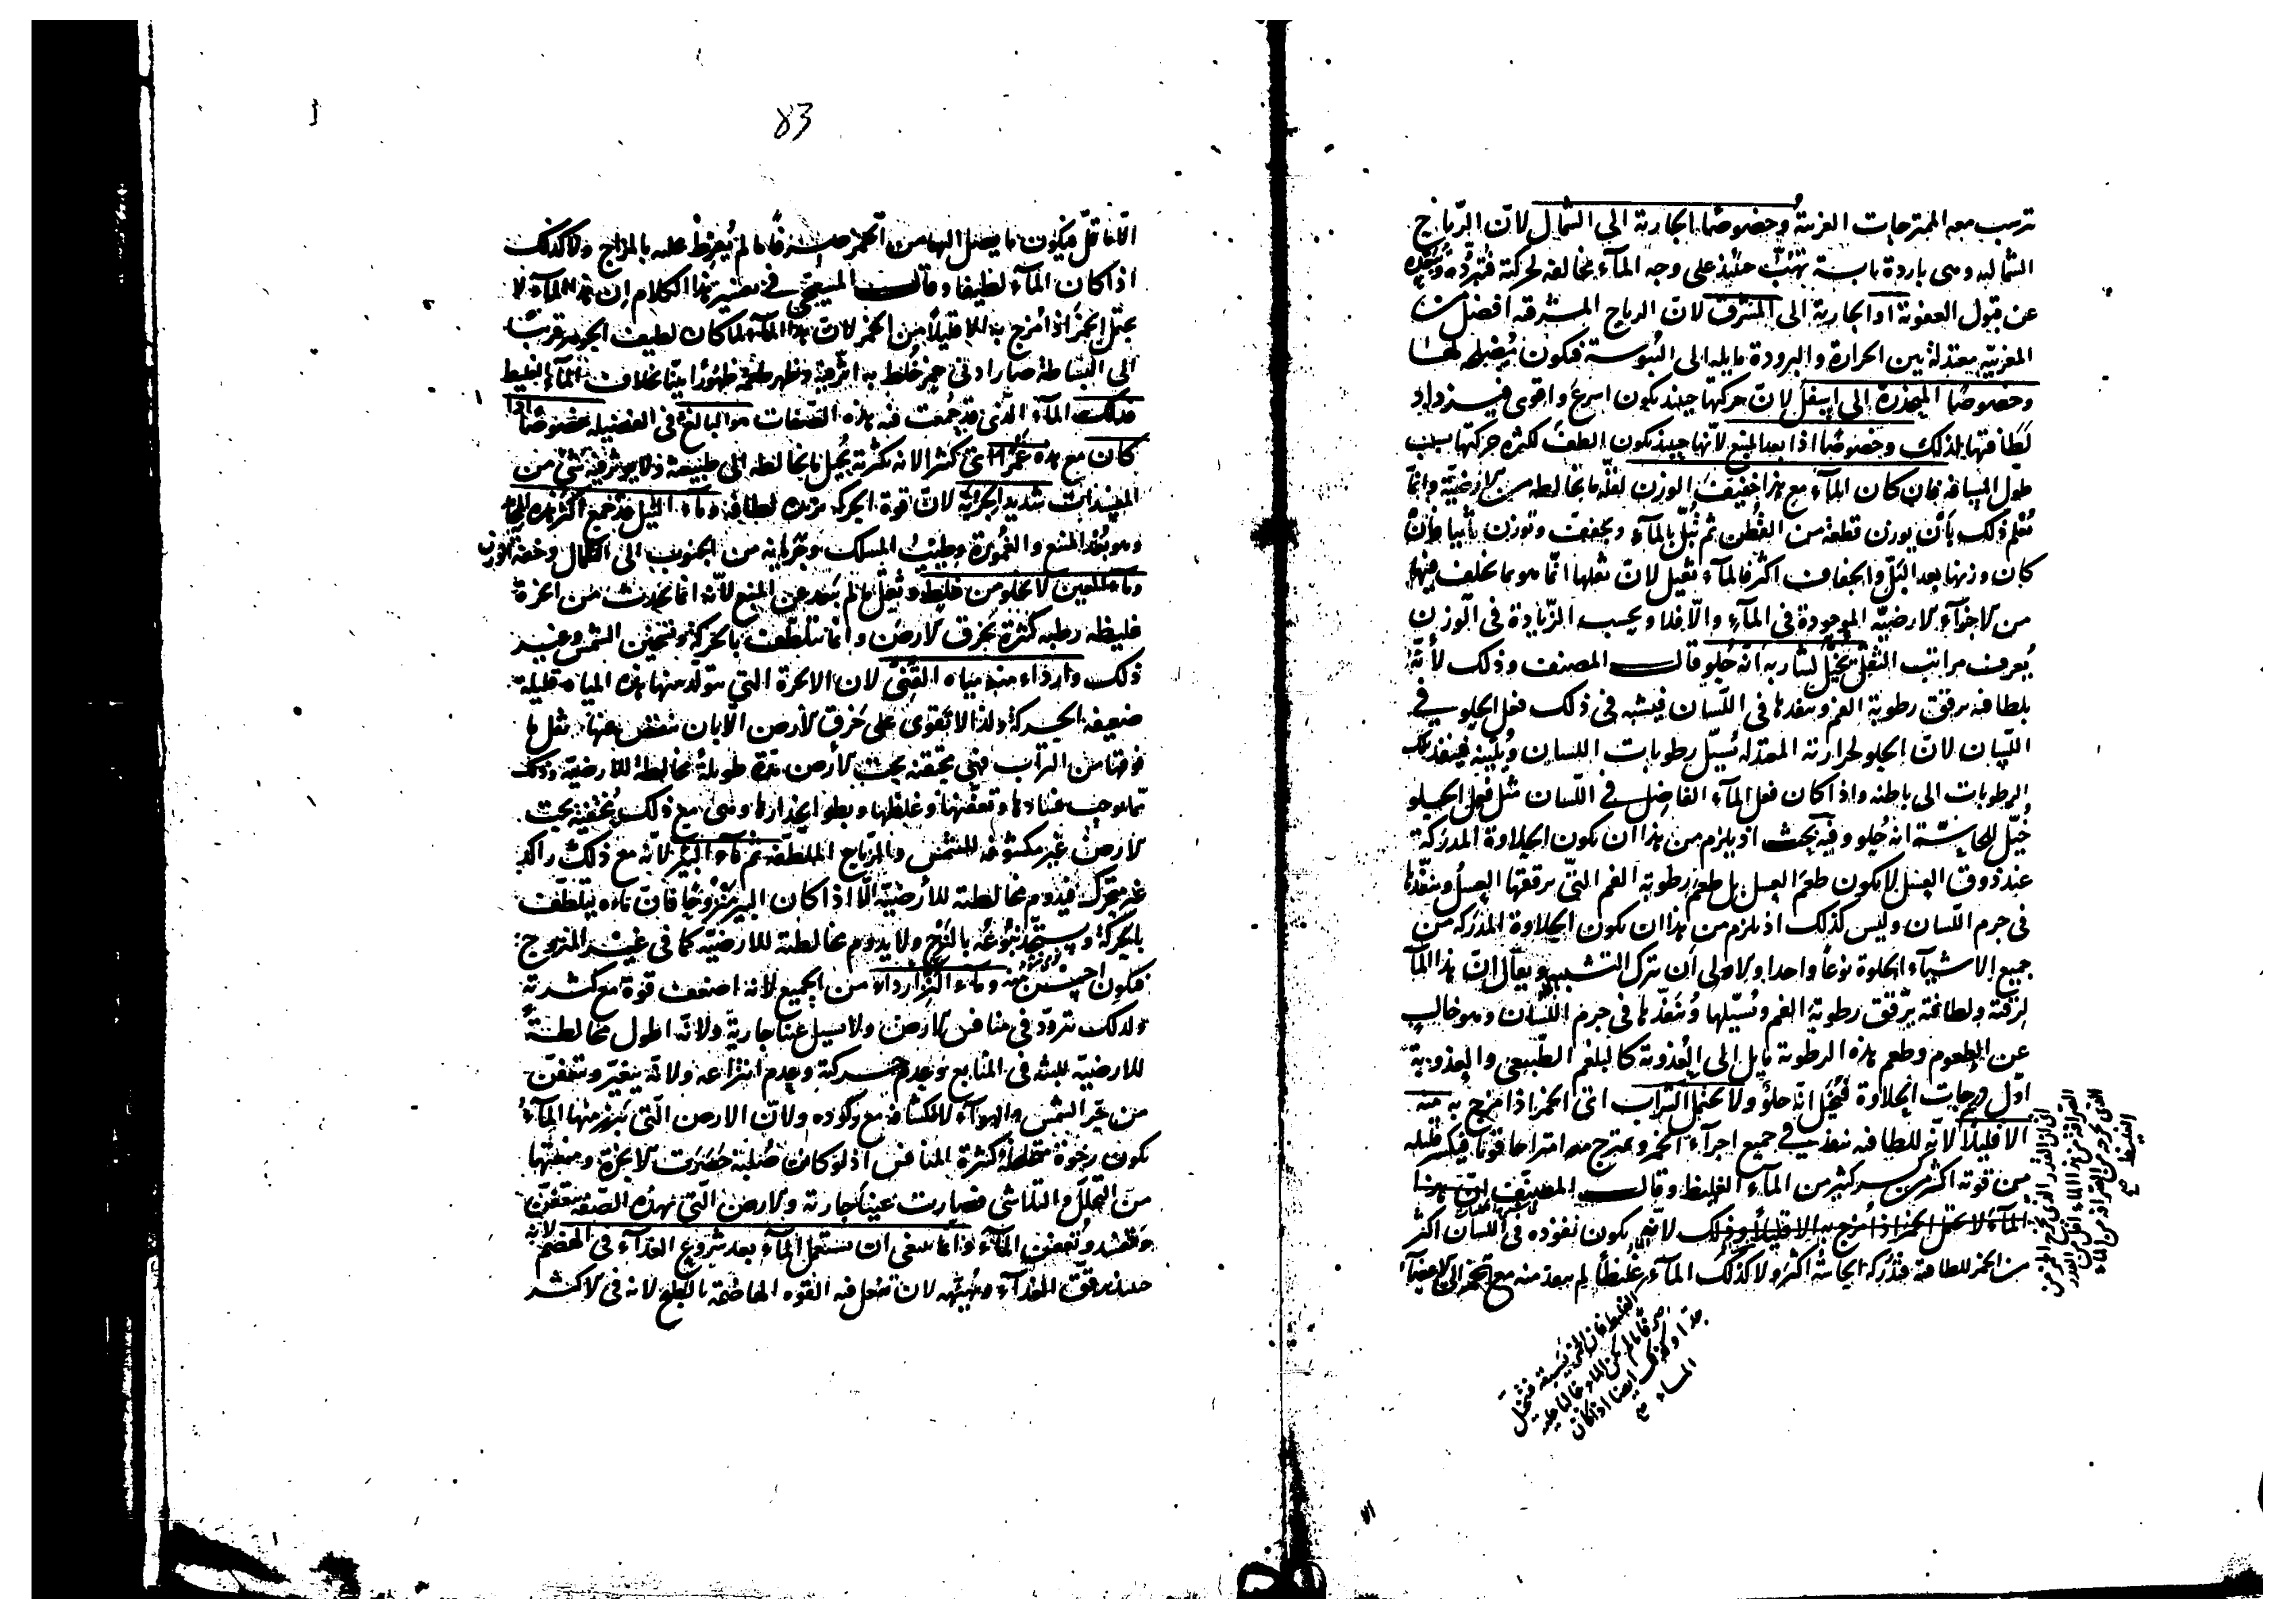 ترسب معه الممتزجات الغريبة وخصوصًا الجارية الى الشمال لانّ الرّياح
الشماليه وهى باردة يابسة تهبّ حينئذ على وجه المآء مخالفة لحركته فتبرّده وتبعده
عن قبول العفونة او الجارية الى المشرق لانّ الرياح المشرقيه افضل من
المغربيّه معتدلة بين الحرارة والبرودة مايله الى اليُبوسة فيكون
وخصوصًا المنحدرة الى اسفل لانّ حركتها حينئذ يكون اسرع واقوى فيزداد
لطافتها لذلك وخصوصًا اذا بعد المنبع لانّها حينئذ يكون الطف لكثرة حركتها بسبب
طول المسافه فان كان المآء مع هذا خفيف الوزن لقلّة ما يخالطه من الارضيّة وانّما
تعلم ذلك بأن يوزن قطعة من القُطن ثم تُبلّ بالمآء وتجفف وتوزن ثانيا فان
كان وزنها بعد البَلّ والجفاف اكثر فالمآء ثقيل لانّ ثقلها انّما هو مما تخلف فيها
من الاجزآء الارضيّه الموجودة فى المآء والّا فلا وبحسب الزّيادة فى الوزن
يُعرف مراتب الثقل يُخيّل لشاربه انّه حُلو قالـ المصنف وذلك لأنّه
بلطافته يرقق رطوبة الفم وينفذها فى اللّسان فيشبه فى ذلك فعل الحلو فى
اللّسان لانّ الحلو لحرارته المعتدله يُسيّل رطوبات اللسان ويُليّنه فينفذ تلك
الرطوبات الى باطنه واذا كان فعل المآء الفاضل فى اللّسان مثل فعل الحلو
خيّل للحاسّة انه حُلو وفيه بحث اذ يلزم من هذا ان يكون الحلاوة المدركة
عند ذوق العسل لا يكون طعم العسل بل طعم رطوبة الفم التى يرققها العسل وينفّذها
فى جرم اللّسان وليس كذلك اذ يلزم من هذا ان يكون الحلاوة المدركة من
جميع الاشيآء الحلوة نوعا واحدا والاولى ان يترك التشبيه ويقال انّ هذا المآء
لرقّته ولطافته يرّقق رطوبة الفم ويُسيّلها وينفّذها فى جرم اللّسان وهو خال
عن الطعوم وطعم هذه الرطوبة مايل الى العُذوبة كالبلغم الطّبيعى والعذوبة
اوّل درجات الحلاوة فيُخيّل انّه حلوٌ ولا يحتمل الشراب اعنى الخمر اذا مزج به منه
الا قليلاً لانّه للطافته ينفذ فى جميع اجزآء الخمر ويمتزج معه امتزاجا قويا فيكسر قليله
من قوته اكثر من كسر كثير من المآء الغليظ وقالـ المصنف انّ هذا
المآء لا يحتمل الخمر اذا مُزج به الا قليلاً وذلك لانه يكون نفوذه فى اللسان اكثر
من الخمر للطافته فتدركه الحاسّة اكثر ولا كذلك المآء غليظًا لم ينفذ منه مع الخمر الى الاعضآء
83
الّا ما قلّ فيكون ما يصل اليها من الخمر صرفًا ما لم يُفرط عليه بالمزاج ولا كذلك
اذا كان المآء لطيفا وقالـ المسيحى فى تفسير هذا الكلام ان هذا المآء لا
يحتمل الخمر اذا مُزج به الا قليلاً من الخمر لانّ هذا المآء لما كان لطيف الجوهر قريبا
الى البساطة صار ادنى خمر خُلط به اثّر فيه وظهر طعمه ظهورًا بيّنا بخلاف المآء الغليظ
فذلك المآء الّذى قد جُمعت فيه هذه الصّفات هو البالغ فى الفضيله خصوصًا اذا
كان مع هذه غَمْرًا اى كثيرا لانه بكثرته يُحيل ما يخالطه الى طبيعته ولا يوثر فيه شئ من
المفسدات شديد الجرية لانّ قوة الحركة تزيده لطافة ومآء النيل قد جمع اكثر هذه المحامد
وهو بُعد المنبع والغُمورة وطيبُ المسلك وجَريانه من الجنوب الى الشمال وخفة الوزن
ومآء العين لا يخلو من غلظ وثقل ما لم يبعد عن المنبع لانّه انما يحدث من ابخرة
غليظه رطبه كثيرة تخرق الارض وانما يتلطّف بالحركة وتسخين الشمس وغير
ذلك واردأ منه مياه القُنِىّ لان الابخرة التى يتولد منها هذه المياه قليلة
ضعيفه الحركة ولذا لا تقوى على خرق الارض الّا بان ينقص عنها ثقل ما
فوقها من التراب فهى محتقنة تحت الارض مدّة طويلة مخالطة للارضيّة وذلك
مما يوجب فسادها وتعفّنها وغلظها وبطو انحدارها وهى مع ذلك مختفية تحت
الارض غير مكشوفة للشمس والرّياح الملطّفه ثم مآء البئر لانّه مع ذلك راكد
غير متحرّك فيدوم مخالطته للأرضيّة الّا اذا كان البير مَنْزُوحًا فانّ مآءه يتلطّف
بالحركة ويستجدّ نبوعه بالنزح ولا يدوم مخالطته للارضيّه كما فى غير المنزوح
فيكون احسن منه ومآء النزّ اردأ من الجميع لانه اضعف قوة مع كثرته
ولذلك تردّد فى منافس الارض ولا يسيل عينا جاريةً ولانّه اطول مخالطة
للارضيّه للبثه فى المنابع وعدم حركته وعدم انتزاعه ولانّه يتغيّر ويتعفّن
من حرّ الشمس والهوآء لانكشافه مع ركوده ولانّ الارض الّتى يَنِز منها المآء
تكون رخوة متخلخلة كثيرة المنافس اذ لو كانت صُلبة حَصَرت الابخرة ومنعتها
من التحلّل والتلاشى فصارت عينًا جارية والارض الّتى بهذه الصّفة يتعفّن
ويفسد ويُعفن المآء وانما ينبغى ان يستعمل المآء بعد شروع الغذآء فى الهضم لانّه
حينئذ يرقّق الغذآء ويُهيّئه لان تفعل فيه القوه الهاضمة بالطبخ لانه فى الاكثر